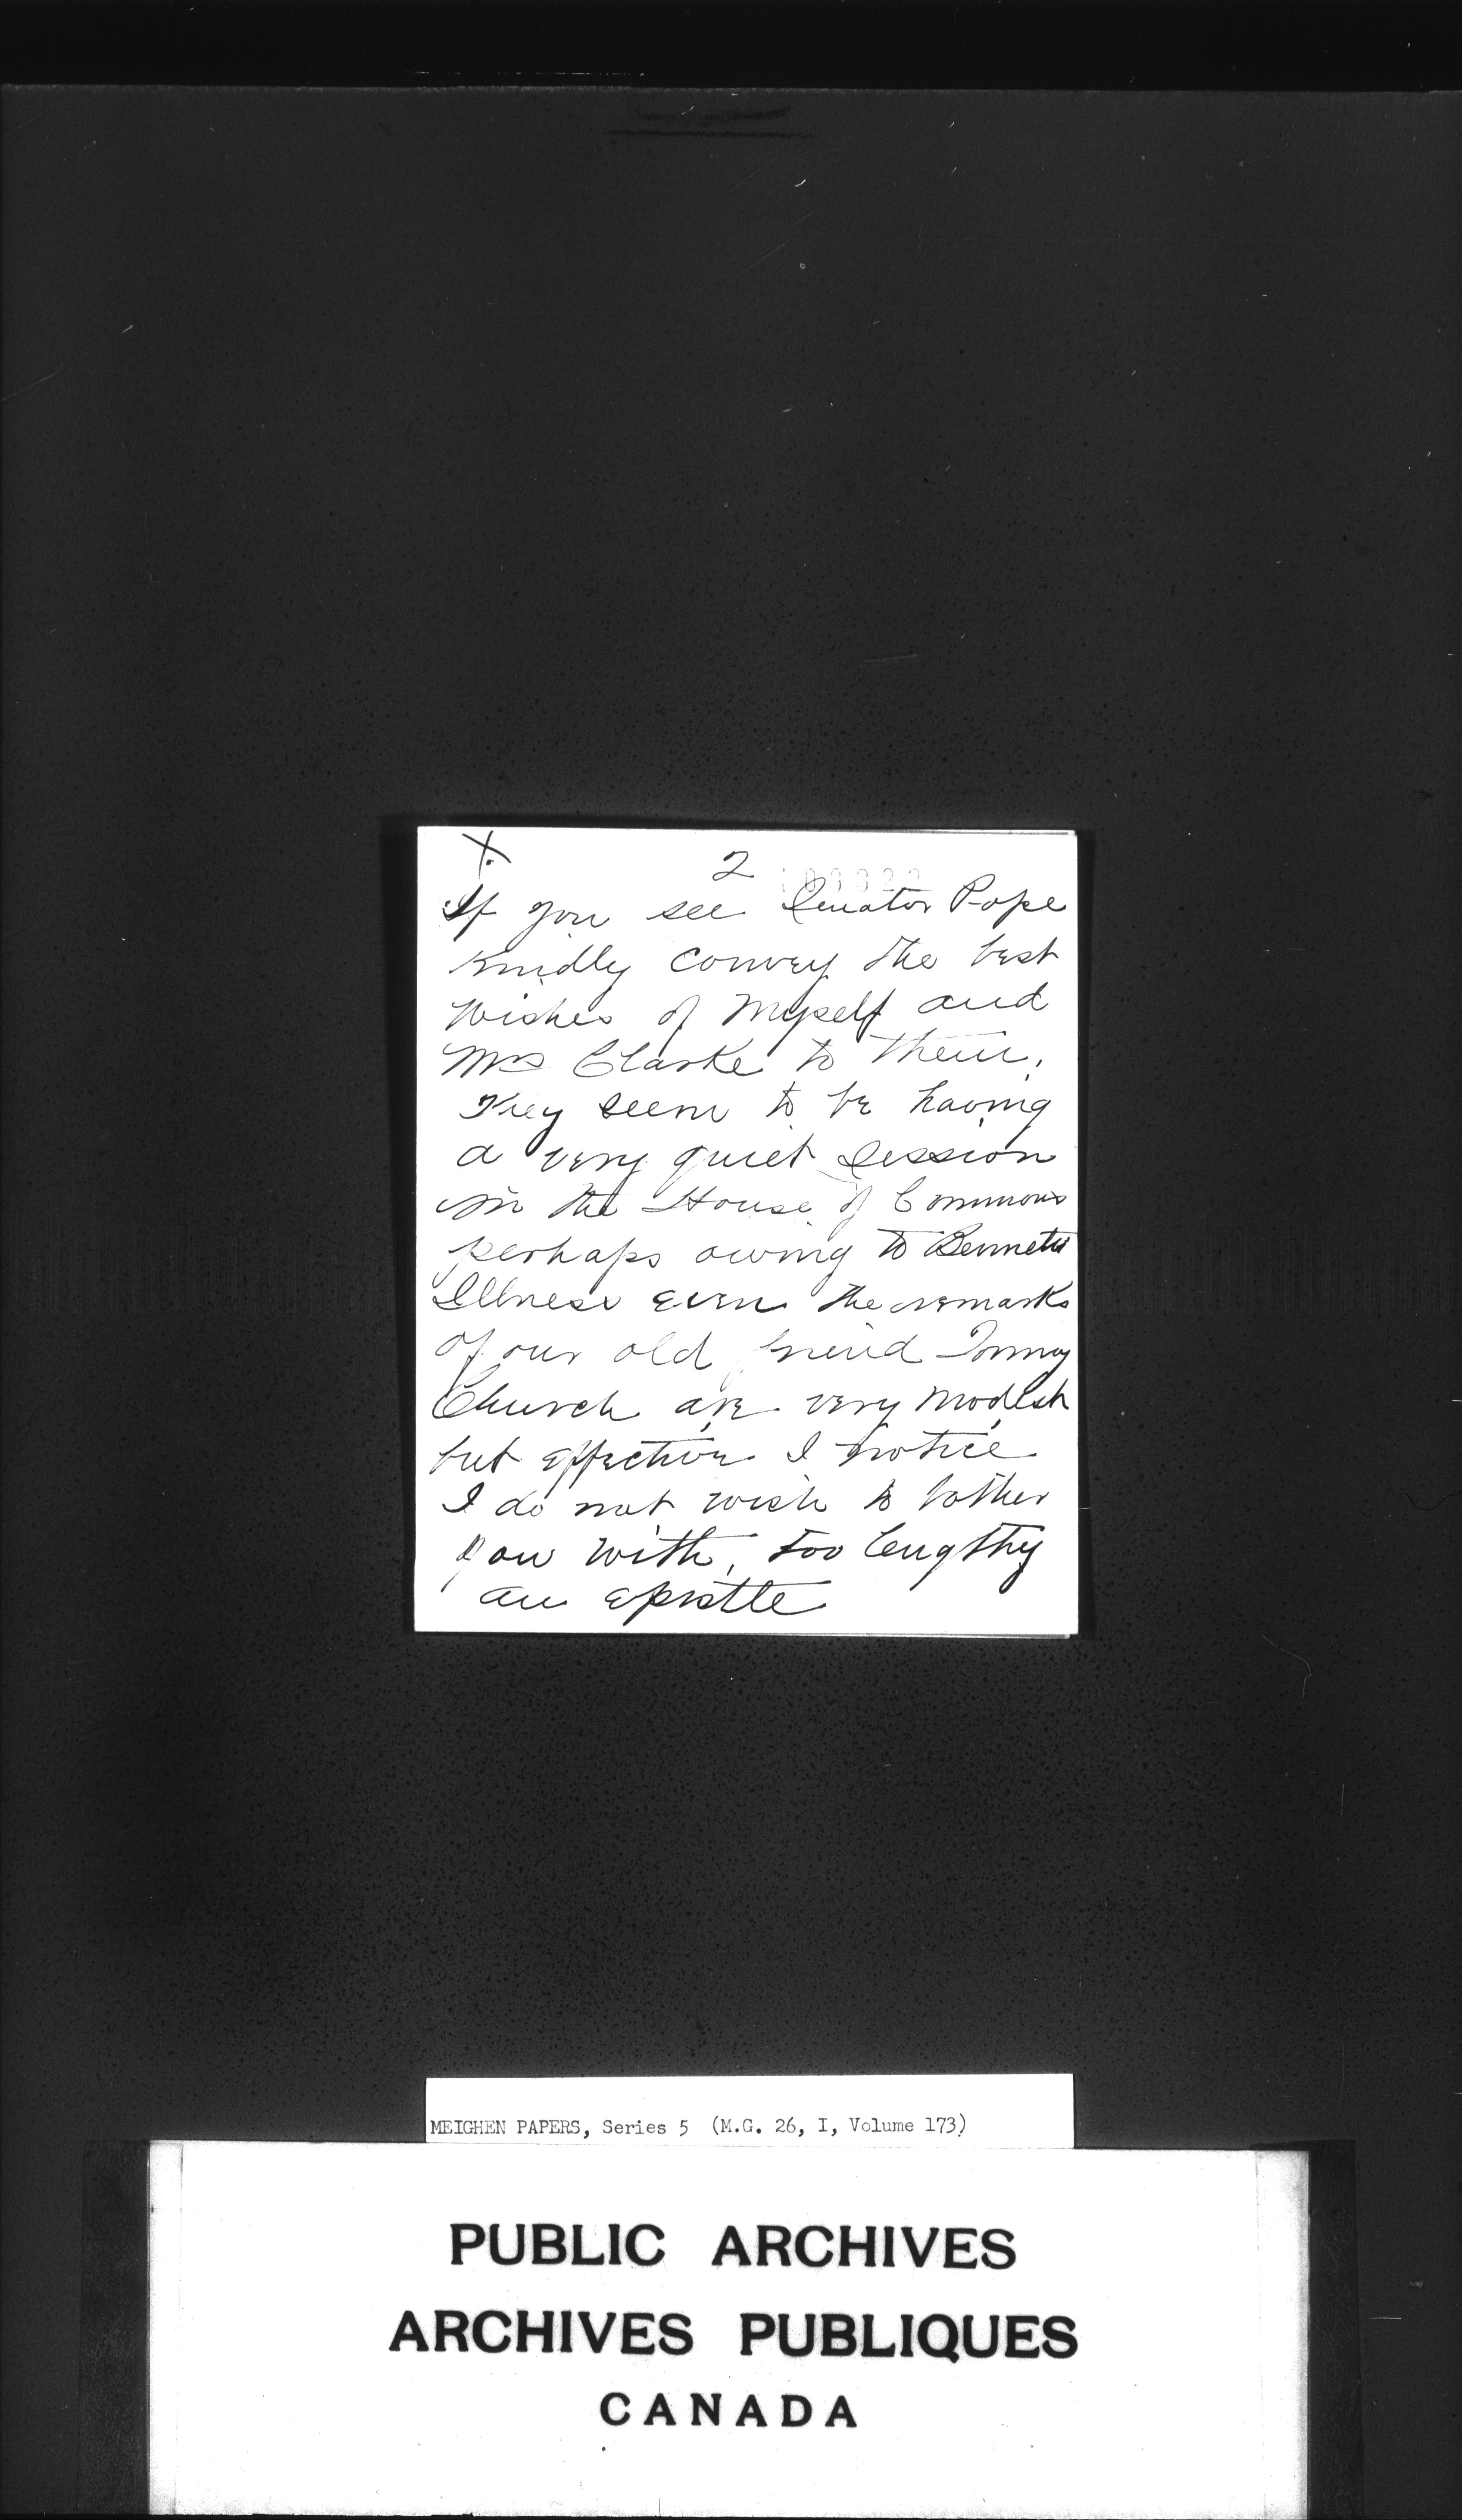 X
2
If you see Senator Pope
Kindly convey the best
wishes of Myself and
Mrs Clarke to them.
They seem to be having
a very quiet Session
in the House of Commons
perhaps owing to Bennetts
Illness even the remarks
of our old friend Tommy
Church are very modest
but effective I notice
I do not wish to bother
you with, too lengthy
an epistle
MEIGHEN PAPERS, Series 5 (M.G. 26, I, Volume 173)
PUBLIC ARCHIVES
ARCHIVES PUBLIQUES
CANADA